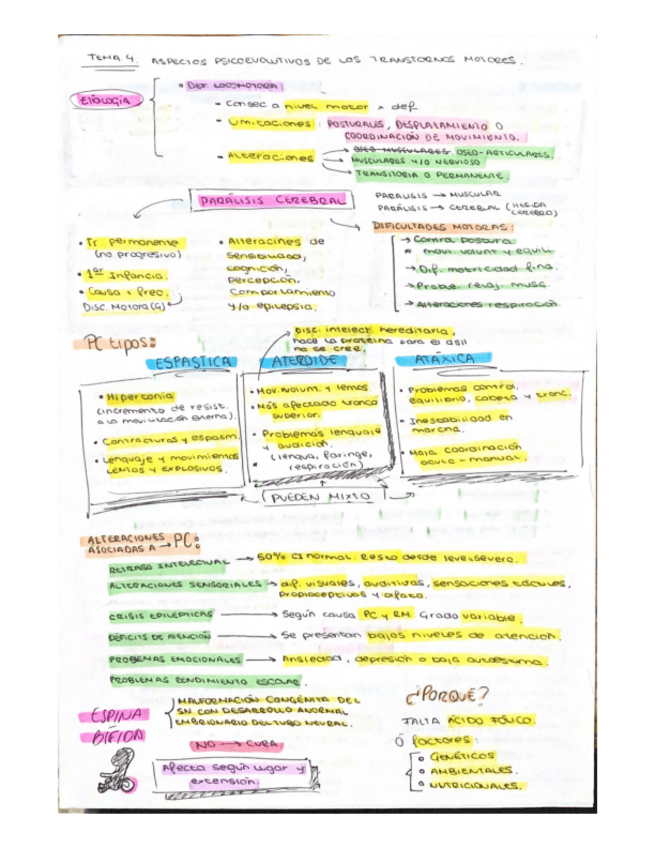 TEMA 4. ASPECTOS PSICOEVOLUTIVOS DE LOS TRANSTORNOS MOTORES.
ETIOLOGÍA
• DEF. LOCOMOTORA:
- Consec a nivel motor × def
- LIMITACIONES: POSTURALES, DESPLAZAMIENTO O
COORDINACIÓN DE MOVIMIENTO.
- ALTERACIONES
OSEO-MUSCULARES OSEO-ARTICULARES.
MUSCULARES Y/O NERVIOSO
TRANSITORIA O PERMANENTE.
PARÁLISIS CEREBRAL
PARALISIS → MUSCULAR
PARÁLISIS → CEREBRAL (HERIDA
CEREBRO)
• Tr. permanente
(no progresivo)
• 1ª Infancia.
• Causa + frec.
Disc. Motora (G)
• Alteraciones de
sensibilidad,
cognición,
percepción,
comportamiento
y/o epilepsia.
DIFICULTADES MOTORAS:
→ Control postura.
movi. volunt y equili.
→ Dif. motricidad fina.
→ Proble. relaj. musc.
→ Alteraciones respiración
PC tipos:
Disc. intelect. hereditaria,
hace la proteína para el
no se cree.
ESPASTICA
ATEROIDE
ATÁXICA
• Hipertonía
(incremento de resist.
a la movilización externa).
• Contracturas y espasm.
• Lenguaje y movimientos
LENTOS y EXPLOSIVOS.
• Mov. nolum. y lentos
• Más afectado tronco
superior.
• Problemas lenguaje
y audición.
• (lengua, faringe,
respiración)
• Problemas control,
equilibrio, cabeza y tronc.
• Inestabilidad en
marcha.
• Mala coordinación
óculo-manual.
PUEDEN MIXTO
ALTERACIONES
ASOCIADAS A → PC:
RETRASO INTELECTUAL → 50% CI normal. Resto desde leve-severo.
ALTERACIONES SENSORIALES → dif. visuales, auditivas, sensaciones táctiles,
propioceptivas y olfato.
CRISIS EPILEPTICAS → Según causa PC y RM. Grado variable.
DÉFICITS DE ATENCIÓN → Se presentan bajos niveles de atención.
PROBLEMAS EMOCIONALES → Ansiedad, depresión o baja autoestima.
PROBLEMAS RENDIMIENTO ESCOLAR.
ESPINA
BÍFIDA
MALFORMACIÓN CONGÉNITA DEL
SN CON DESARROLLO ANORMAL
EMBRIONARIO DEL TUBO NEURAL.
NO → CURA.
Afecta según lugar y
extensión.
¿PORQUE?
FALTA ÁCIDO FÓLICO.
Ó factores:
• GENÉTICOS
• AMBIENTALES.
• NUTRICIONALES.